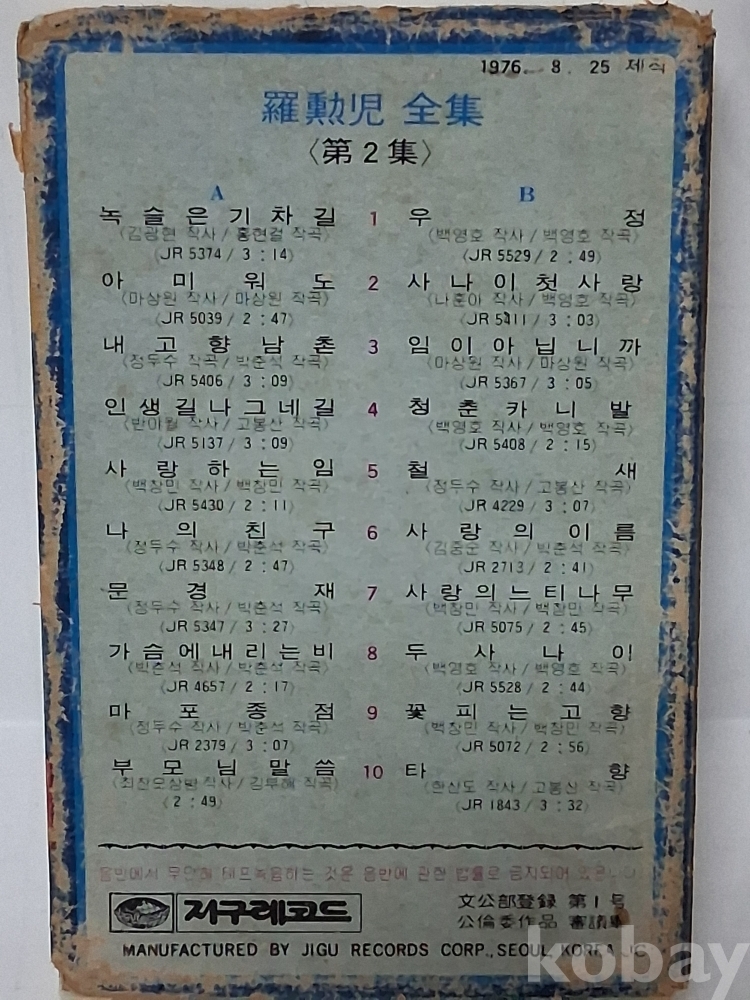 1976. 8. 25 제작
羅勲児 全集
〈第2集〉
A B
녹슬은기차길 1 우정
(김광현 작사/홍현걸 작곡) (백영호 작사/백영호 작곡)
(JR 5374 / 3:14) (JR 5529 / 2:49)
아미워도 2 사나이첫사랑
(마상원 작사/마상원 작곡) (나훈아 작사/백영호 작곡)
(JR 5039 / 2:47) (JR 5411 / 3:03)
내고향남촌 3 임이아닙니까
(정두수 작곡/박춘석 작곡) (마상원 작사/마상원 작곡)
(JR 5406 / 3:09) (JR 5367 / 3:05)
인생길나그네길 4 청춘카니발
(반야월 작사/고봉산 작곡) (백영호 작사/백영호 작곡)
(JR 5137 / 3:09) (JR 5408 / 2:15)
사랑하는임 5 철새
(백창민 작사/백창민 작곡) (정두수 작사/고봉산 작곡)
(JR 5430 / 2:11) (JR 4229 / 3:07)
나의친구 6 사랑의이름
(정두수 작사/박춘석 작곡) (김중순 작사/박춘석 작곡)
(JR 5348 / 2:47) (JR 2713 / 2:41)
문경재 7 사랑의느티나무
(정두수 작사/박춘석 작곡) (백창민 작사/백창민 작곡)
(JR 5347 / 3:27) (JR 5075 / 2:45)
가슴에내리는비 8 두사나이
(박춘석 작사/박춘석 작곡) (백영호 작사/백영호 작곡)
(JR 4657 / 2:17) (JR 5528 / 2:44)
마포종점 9 꽃피는고향
(정두수 작사/박춘석 작곡) (백창민 작사/백창민 작곡)
(JR 2379 / 3:07) (JR 5072 / 2:56)
부모님말씀 10 타향
작사/김부해 작곡) (한산도 작사/고봉산 작곡)
(2:49) (JR 1843 / 3:32)
음반에서 무단히 테프녹음하는 것은 음반에 관한 법률로 금지되어 있습니다
지구레코드 文公部登録 第1号
公倫委作品 審議畢
MANUFACTURED BY JIGU RECORDS CORP., SEOUL, KOREA JC
kobay